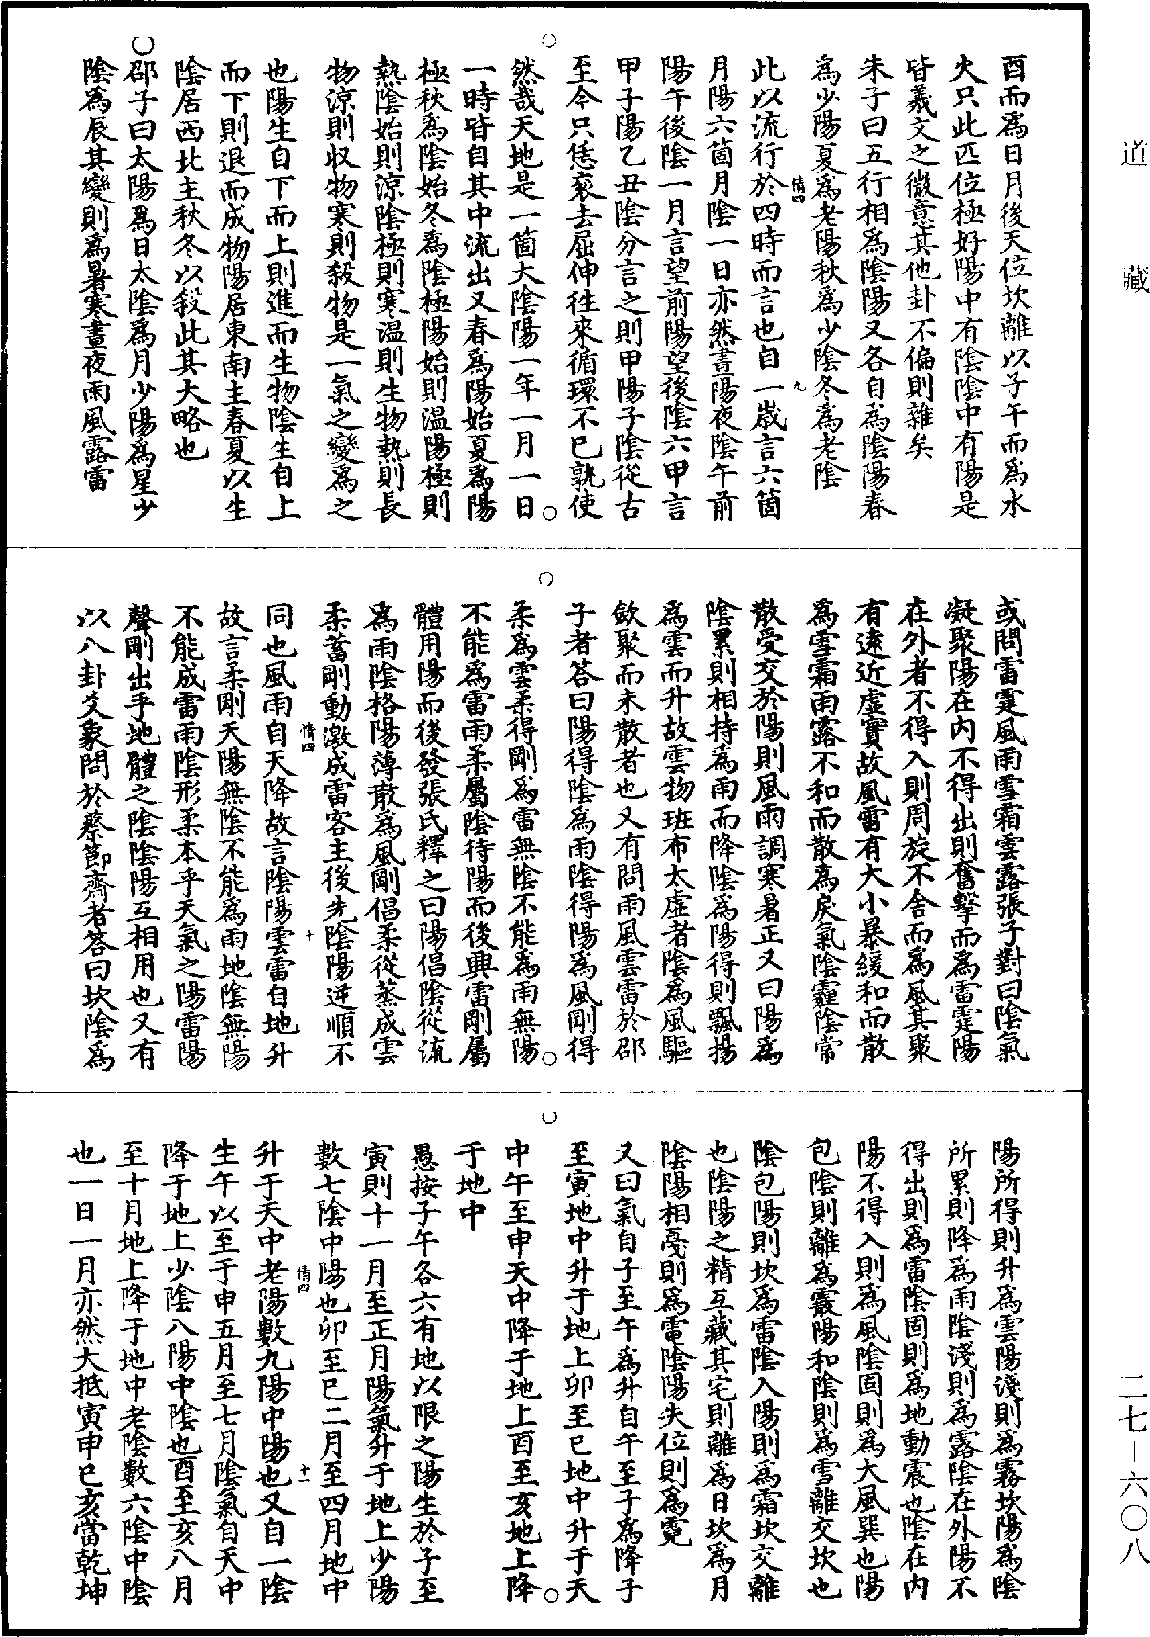 道藏
二七—六〇八
酉而爲日月後天位坎離以子午而爲水
火只此匹位極好陽中有陰陰中有陽是
皆羲文之微意其他卦不偏則雜矣
朱子曰五行相爲陰陽又各自爲陰陽春
爲少陽夏爲老陽秋爲少陰冬爲老陰
情四 九
此以流行於四時而言也自一歲言六箇
月陽六箇月陰一日亦然晝陽夜陰午前
陽午後陰一月言望前陽望後陰六甲言
甲子陽乙丑陰分言之則甲陽子陰從古
至今只恁衮去屈伸往來循環不已孰使
然哉天地是一箇大陰陽一年一月一日
一時皆自其中流出又春爲陽始夏爲陽
極秋爲陰始冬爲陰極陽始則温陽極則
熱陰始則涼陰極則寒温則生物熱則長
物涼則収物寒則殺物是一氣之變爲之
也陽生自下而上則進而生物陰生自上
而下則退而成物陽居東南主春夏以生
陰居西北主秋冬以殺此其大略也
〇邵子曰太陽爲日太陰爲月少陽爲星少
陰爲辰其變則爲暑寒晝夜雨風露雷
或問雷霆風雨雪霜雲露張子對曰陰氣
凝聚陽在内不得出則奮擊而爲雷霆陽
在外者不得入則周旋不舍而爲風其聚
有遠近虚實故風雷有大小暴緩和而散
爲雪霜雨露不和而散爲戾氣陰霾陰常
散受交於陽則風雨調寒暑正又曰陽爲
陰累則相持爲雨而降陰爲陽得則飄揚
爲雲而升故雲物班布太虚者陰爲風驅
歛聚而未散者也又有問雨風雲雷於邵
子者答曰陽得陰爲雨陰得陽爲風剛得
柔爲雲柔得剛爲雷無陰不能爲雨無陽
不能爲雷雨柔屬陰待陽而後興雷剛屬
體用陽而後發張氏釋之曰陽倡陰從流
爲雨陰格陽薄散爲風剛倡柔從蒸成雲
柔蓄剛動激成雷客主後先陰陽逆順不
情四 十
同也風雨自天降故言陰陽雲雷自地升
故言柔剛天陽無陰不能爲雨地陰無陽
不能成雷雨陰形柔本乎天氣之陽雷陽
聲剛出乎地體之陰陰陽互相用也又有
以八卦爻象問於蔡節齋者答曰坎陰爲
陽所得則升爲雲陽淺則爲霧坎陽爲陰
所累則降爲雨陰淺則爲露陰在外陽不
得出則爲雷陰固則爲地動震也陰在内
陽不得入則爲風陰固則爲大風巽也陽
包陰則離爲霰陽和陰則爲雪離交坎也
陰包陽則坎爲雷陰入陽則爲霜坎交離
也陰陽之精互藏其宅則離爲日坎爲月
陰陽相戞則爲電陰陽失位則爲霓
又曰氣自子至午爲升自午至子爲降子
至寅地中升于地上卯至巳地中升于天
中午至申天中降于地上酉至亥地上降
于地中
愚按子午各六有地以限之陽生於子至
寅則十一月至正月陽氣升于地上少陽
數七陰中陽也卯至巳二月至四月地中
情四 十一
升于天中老陽數九陽中陽也又自一陰
生午以至于申五月至七月陰氣自天中
降于地上少陰八陽中陰也酉至亥八月
至十月地上降于地中老陰數六陰中陰
也一日一月亦然大抵寅申巳亥當乾坤